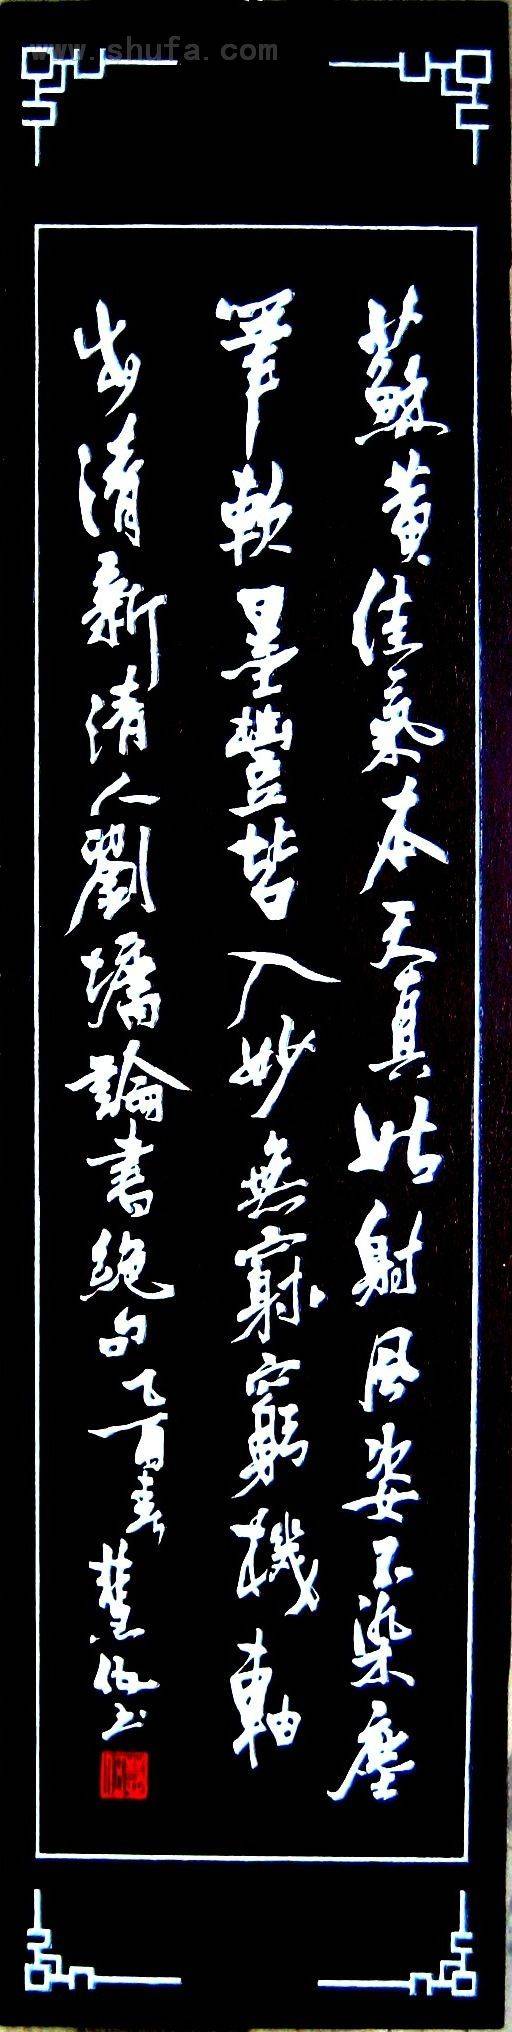 www.shufa.com
蘇黄佳氣本天真姑射風姿不染塵
筆軟墨豐皆入妙無窮機軸
出清新清人劉墉論書絶句乙酉春慧书